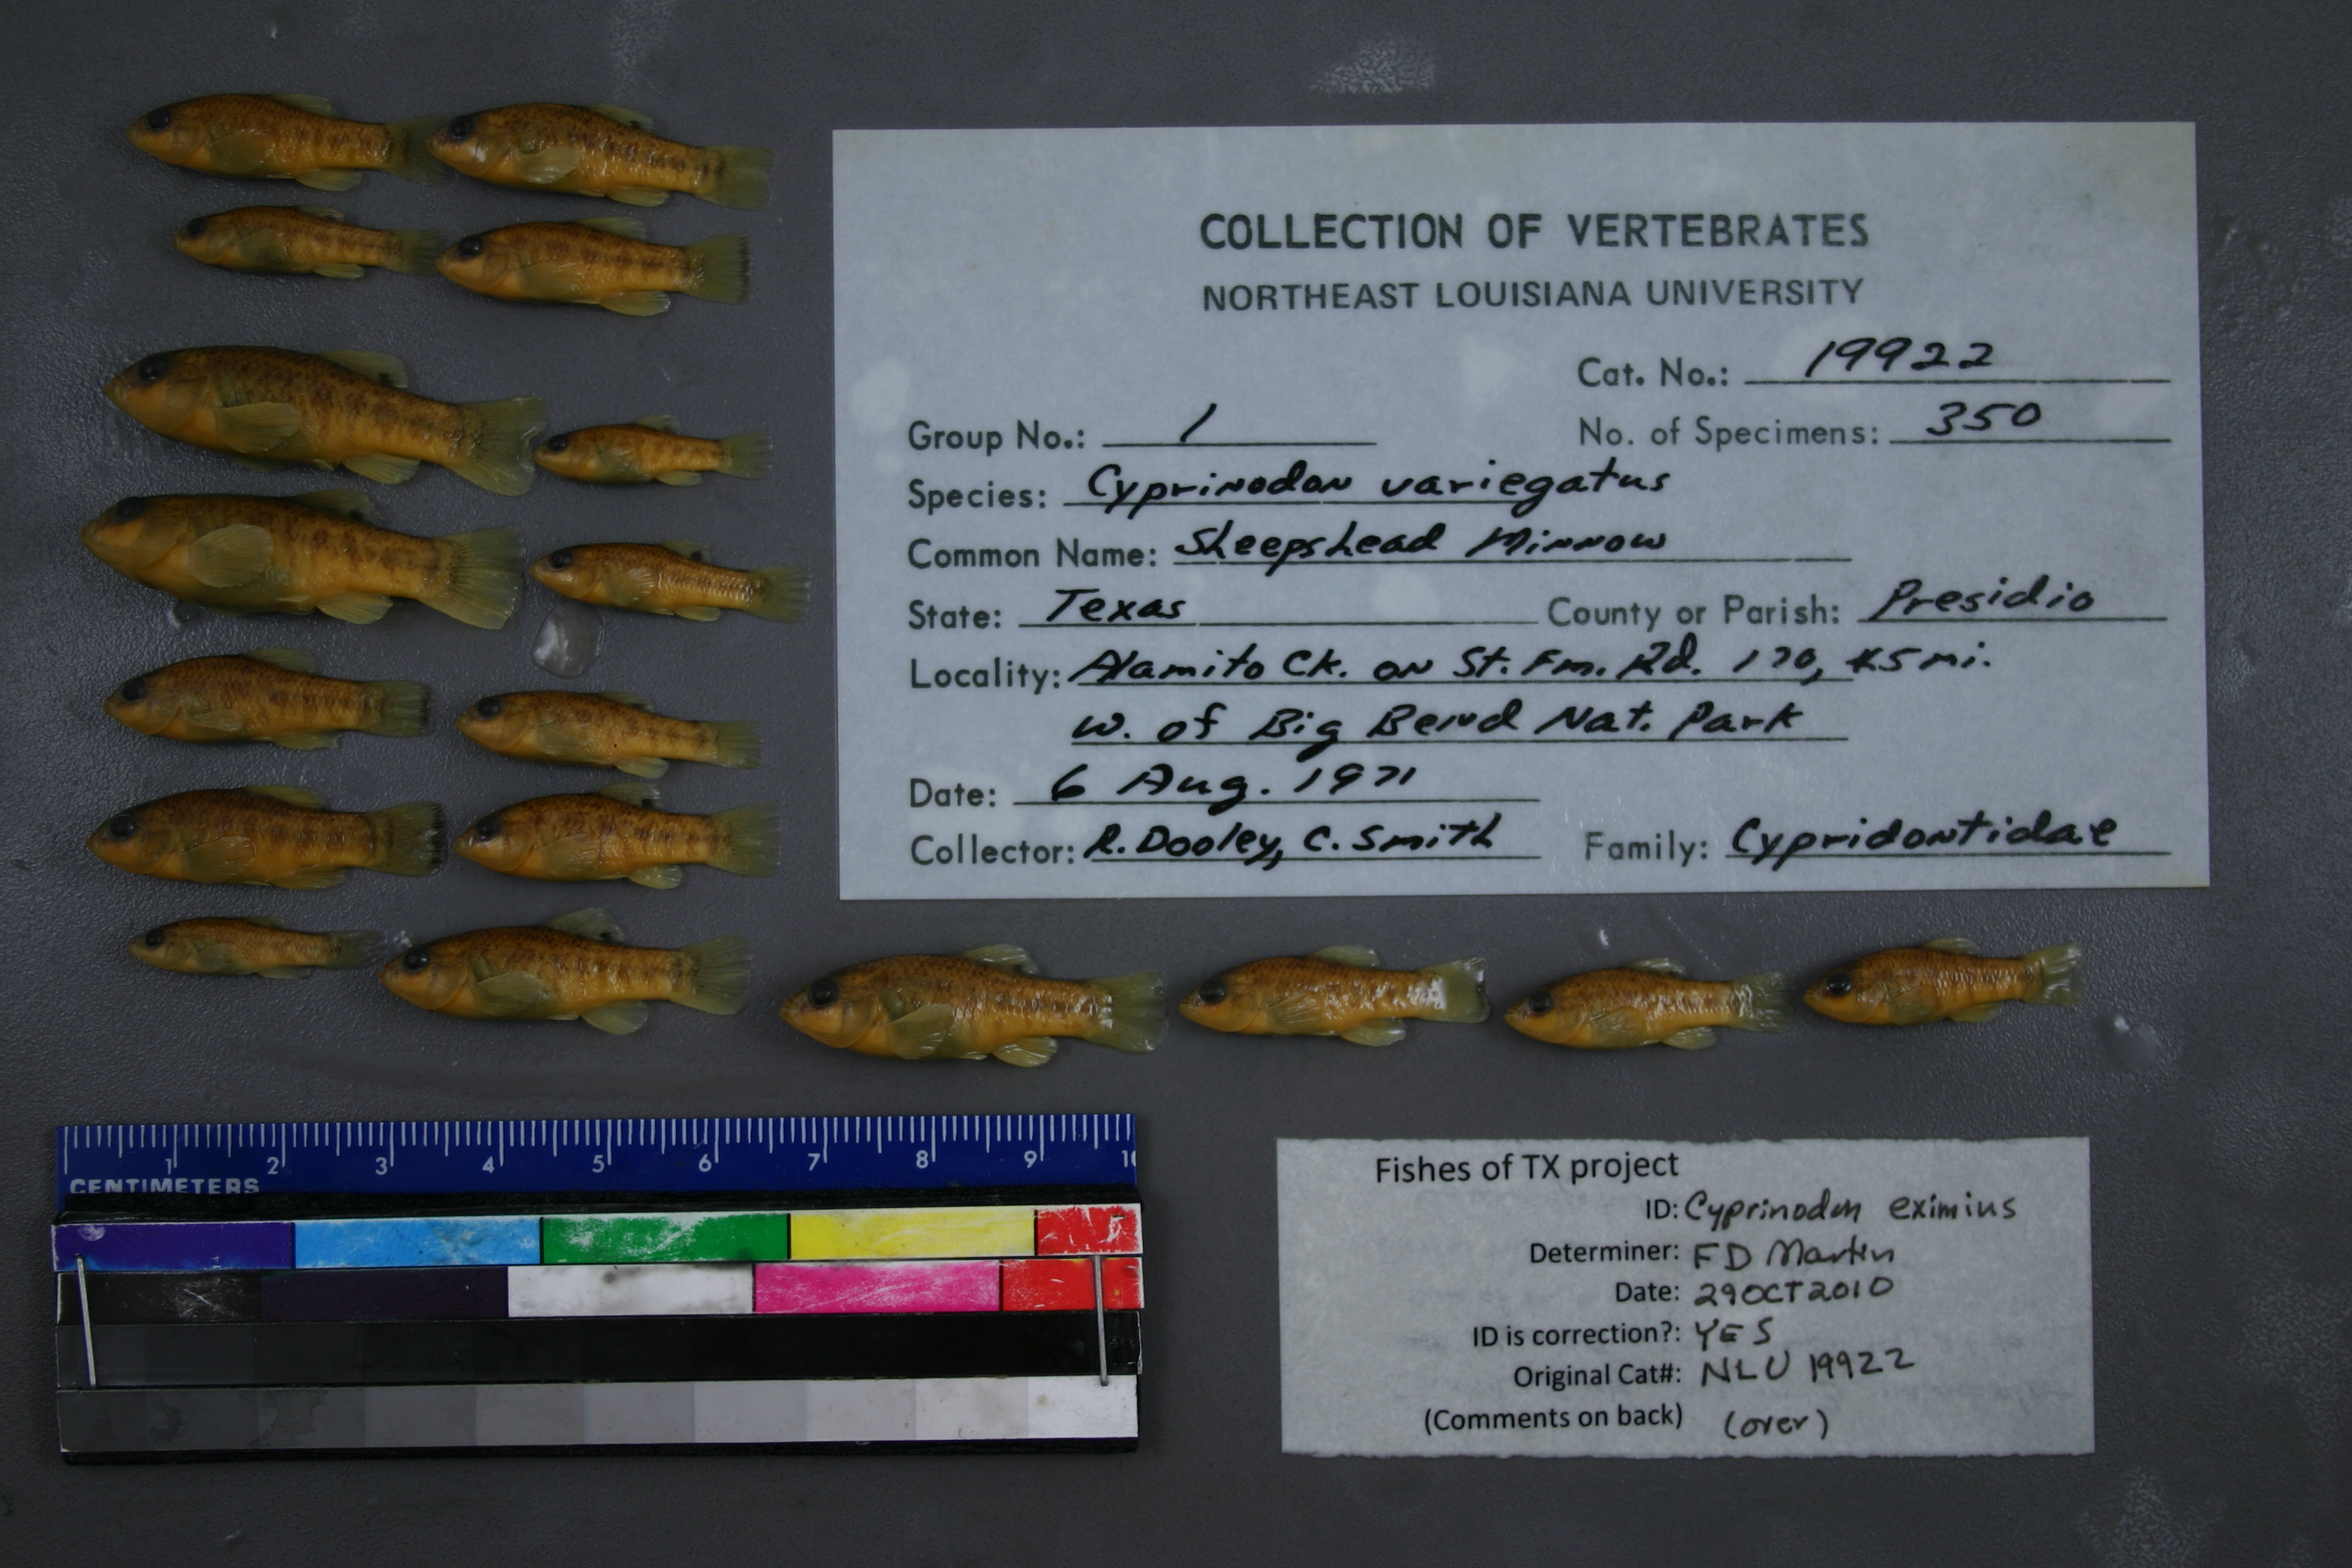 COLLECTION OF VERTEBRATES
NORTHEAST LOUISIANA UNIVERSITY
Cat. No.: 19922
Group No.: 1 No. of Specimens: 350
Species: Cyprinodon variegatus
Common Name: Sheepshead Minnow
State: Texas County or Parish: Presidio
Locality: Alamito Ck. on St. Fm. Rd. 170, 5 mi.
w. of Big Bend Nat. Park
Date: 6 Aug. 1971
Collector: R. Dooley, C. Smith Family: Cypridontidae
1 2 3 4 5 6 7 8 9 10
CENTIMETERS
Fishes of TX project
ID: Cyprinodon eximius
Determiner: FD Martin
Date: 29OCT2010
ID is correction?: YES
Original Cat#: NLU 19922
(Comments on back) (over)